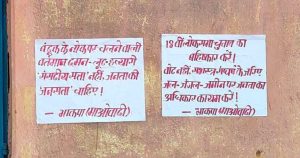 बंदूक के नोक पर चलने वाली
वर्तमान दमन-लूट-हत्यारी
"संसदीय-सत्ता" नहीं, जनता की
'जनसत्ता' चाहिए!
— भाकपा (माओवादी)
18वीं लोकसभा चुनाव का
बहिष्कार करें!
वोट नहीं, सशस्त्र संघर्ष के जरिए
जल-जंगल-जमीन पर जनता का
अधिकार कायम करें!
— भाकपा (माओवादी)